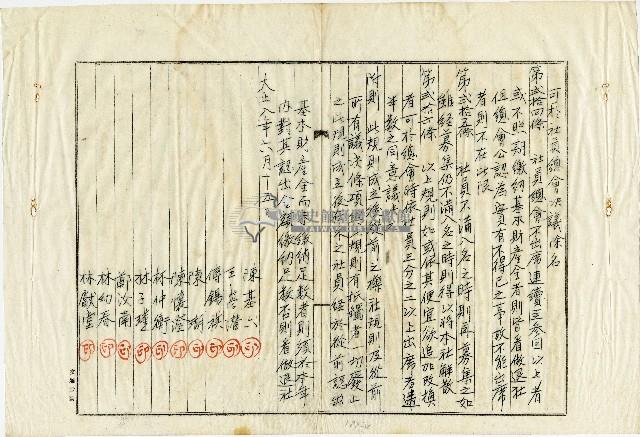 可於社員總會決議除名
第貳拾四條 社員總會不出席連續至叁回以上者
或不照期繳納基本財產全者則皆看做退社
但總會公認為實有不得已之事故不能出席
者則不在此限
第貳拾五條 社員不滿八名之時則再募集之如
雖經募集仍不滿八名之時則得以將本社解散
第貳拾六條 以上規則如或依其便宜欲追加改換
者可於總會時依社員三分之二以上出席者過
半數之同意議決
附則 此規則成立後從前之櫟社規則及從前
所有議決條項與此規則有抵觸者一切廢止
之此規則成立後原來之社員經於從前認出
基本財產全而未繳納足數者則須於本年
內對其認出全額繳納足數否則看做退社
大正八年六月十五
陳基六
王學潛
傅錫祺
陳瑚
陳懷澄
林仲衡
林子瑾
鄭汝南
林幼春
林獻堂
印 印 印 印 印 印 印 印 印 印